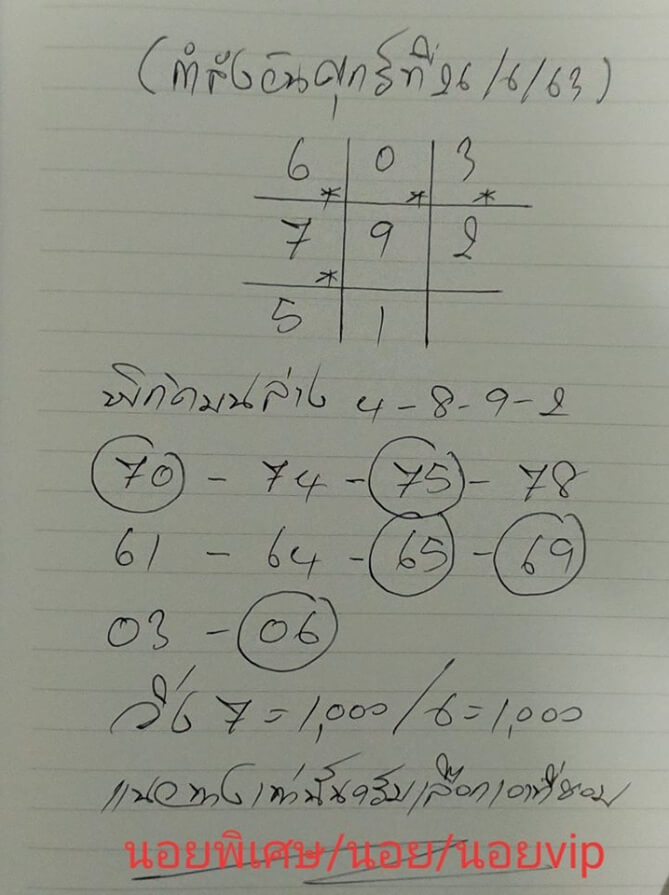 (กำลังวันศุกร์ที่ 26/6/63)
6 0 3
* * *
7 9 2
*
5 1
พิกัดบนล่าง 4-8-9-2
70 - 74 - 75 - 78
61 - 64 - 65 - 69
03 - 06
วิ่ง 7 = 1,000 / 6 = 1,000
แนวทางเท่านั้นครับเลือกเอาที่ชอบ
นอยพิเศษ/นอย/นอยvip